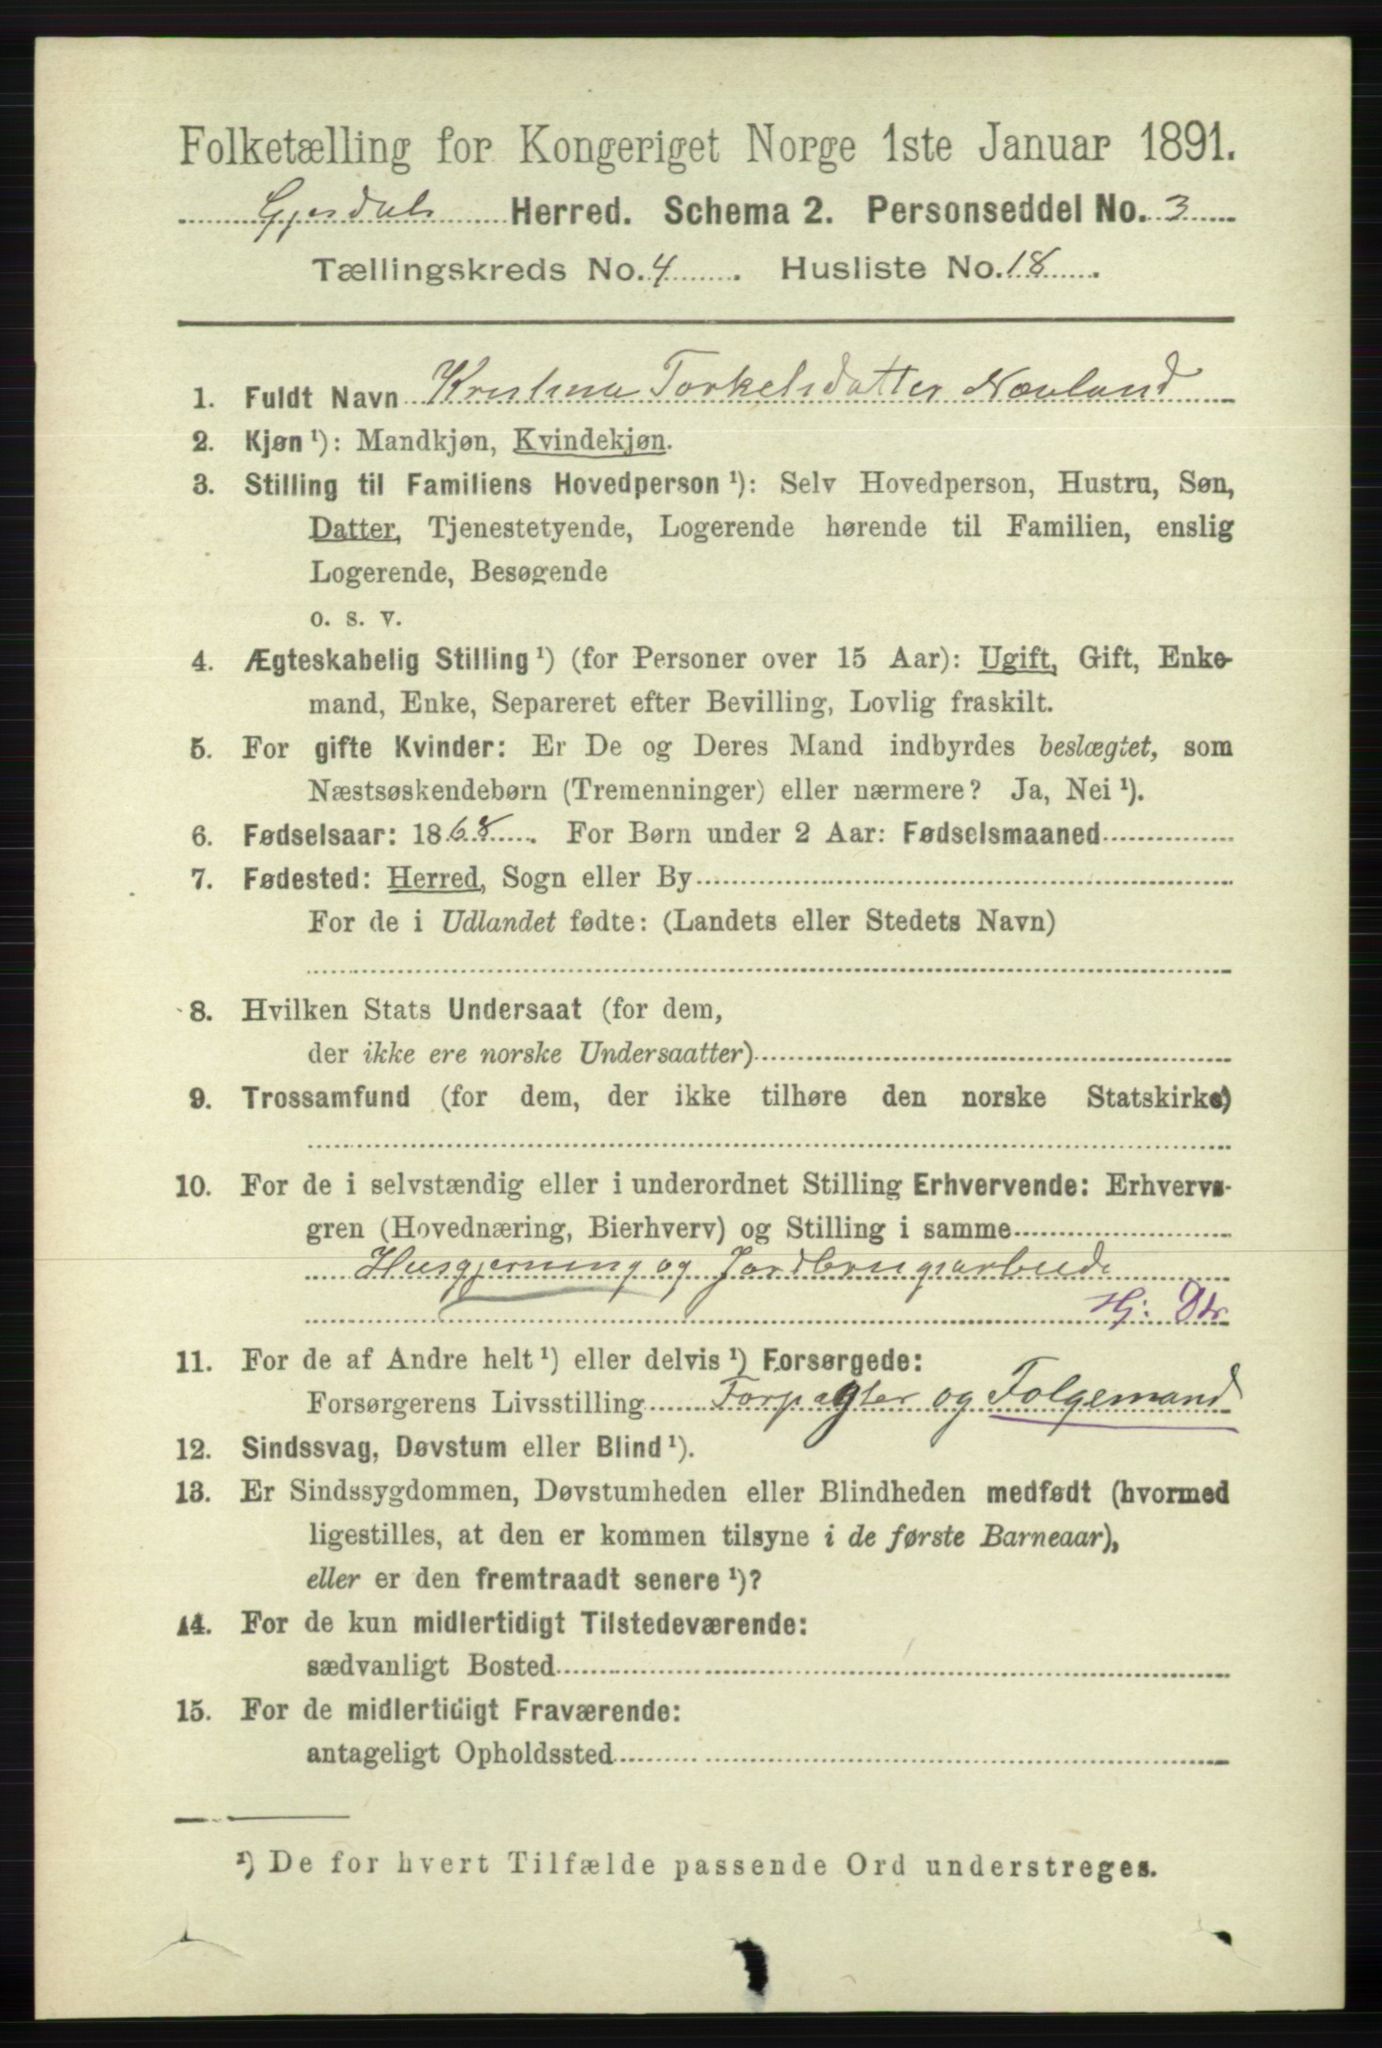 Folketælling for Kongeriget Norge 1ste Januar 1891.
Gjesdals Herred. Schema 2. Personseddel No. 3
Tællingskreds No. 4. Husliste No. 18.
1. Fuldt Navn Kristina Torkelsdatter Næuland
2. Kjøn ¹): Mandkjøn, Kvindekjøn.
3. Stilling til Familiens Hovedperson ¹): Selv Hovedperson, Hustru, Søn,
Datter, Tjenestetyende, Logerende hørende til Familien, enslig
Logerende, Besøgende
o. s. v.
4. Ægteskabelig Stilling ¹) (for Personer over 15 Aar): Ugift, Gift, Enke-
mand, Enke, Separeret efter Bevilling, Lovlig fraskilt.
5. For gifte Kvinder: Er De og Deres Mand indbyrdes beslægtet, som
Næstsøskendebørn (Tremenninger) eller nærmere? Ja, Nei ¹).
6. Fødselsaar: 1868. For Børn under 2 Aar: Fødselsmaaned
7. Fødested: Herred, Sogn eller By
For de i Udlandet fødte: (Landets eller Stedets Navn)
8. Hvilken Stats Undersaat (for dem,
der ikke ere norske Undersaatter)
9. Trossamfund (for dem, der ikke tilhøre den norske Statskirke)
10. For de i selvstændig eller i underordnet Stilling Erhvervende: Erhvervs-
gren (Hovednæring, Bierhverv) og Stilling i samme
Husgjerning og Jordbrugsarbeide
Hj. Dtr
11. For de af Andre helt ¹) eller delvis ¹) Forsørgede:
Forsørgerens Livsstilling Forpagter og Folgemand
12. Sindssvag, Døvstum eller Blind ¹).
13. Er Sindssygdommen, Døvstumheden eller Blindheden medfødt (hvormed
ligestilles, at den er kommen tilsyne i de første Barneaar),
eller er den fremtraadt senere ¹)?
14. For de kun midlertidigt Tilstedeværende:
sædvanligt Bosted
15. For de midlertidigt Fraværende:
antageligt Opholdssted
¹) De for hvert Tilfælde passende Ord understreges.